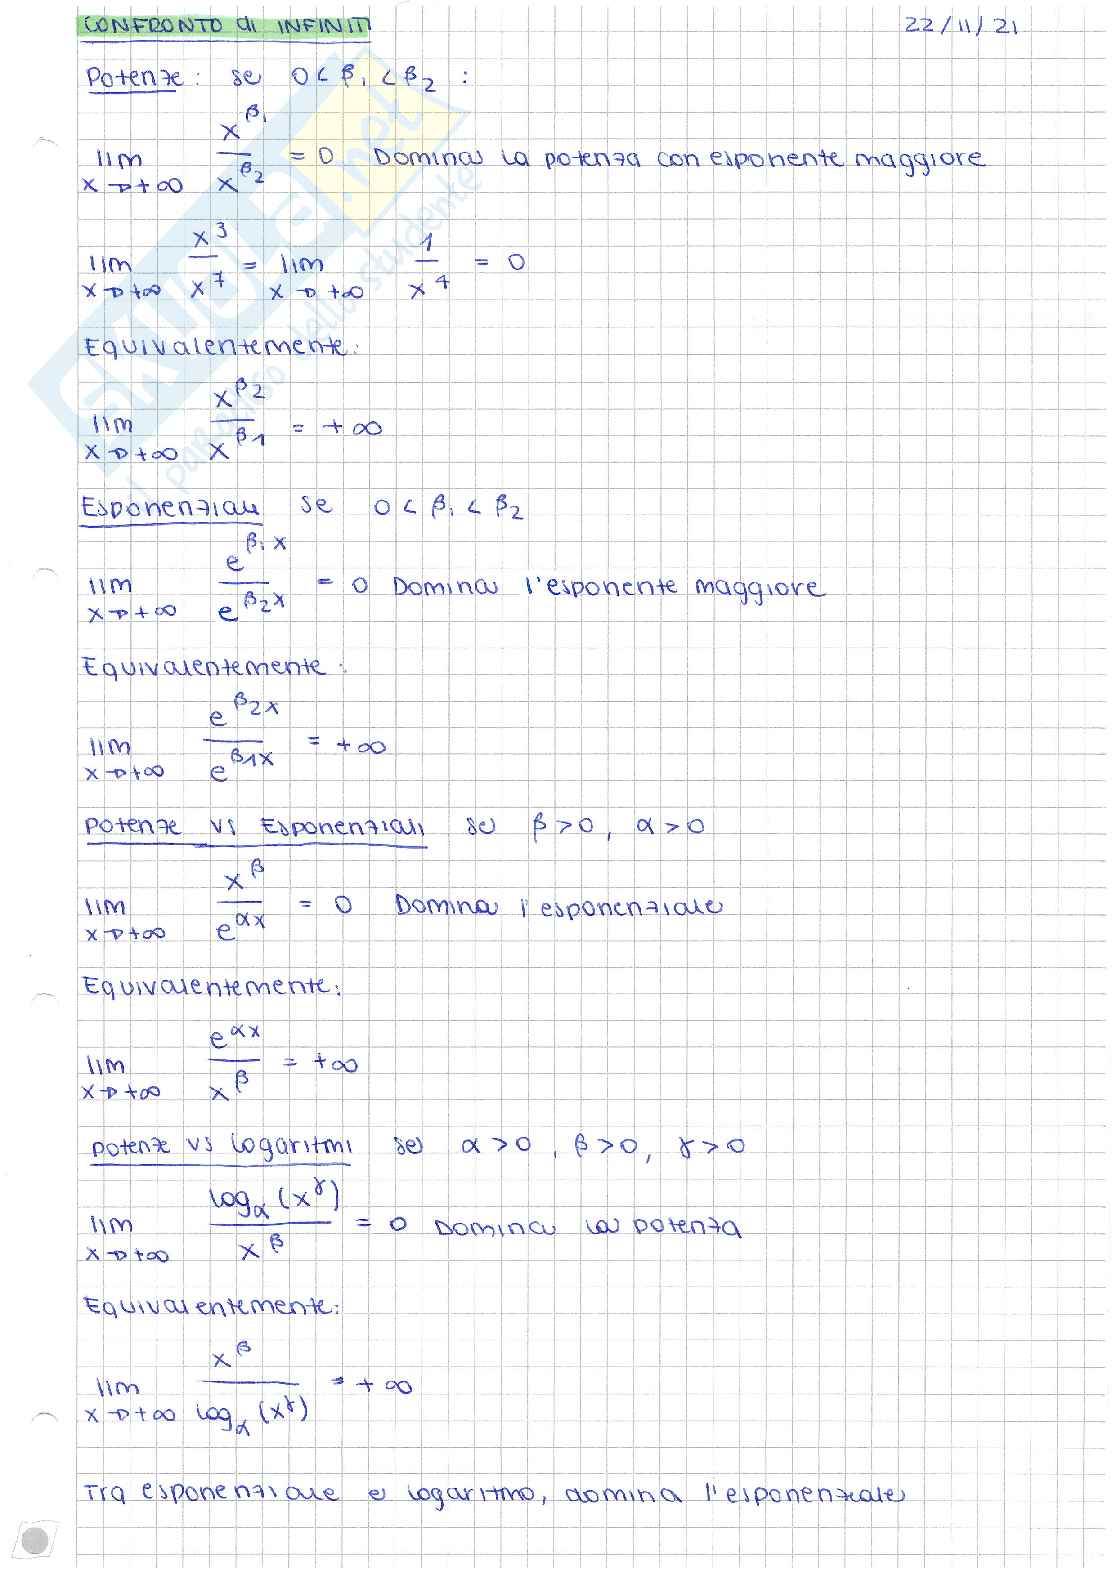 CONFRONTO di INFINITI 22/11/21
Potenze: se 0 < β₁ < β₂ :
lim x→+∞ x^β₁ / x^β₂ = 0 Domina la potenza con esponente maggiore
lim x→+∞ x³ / x⁷ = lim x→+∞ 1 / x⁴ = 0
Equivalentemente:
lim x→+∞ x^β₂ / x^β₁ = +∞
Esponenziali se 0 < β₁ < β₂
lim x→+∞ e^β₁x / e^β₂x = 0 Domina l'esponente maggiore
Equivalentemente:
lim x→+∞ e^β₂x / e^β₁x = +∞
Potenze vs Esponenziali se β>0, α>0
lim x→+∞ x^β / e^αx = 0 Domina l'esponenziale
Equivalentemente:
lim x→+∞ e^αx / x^β = +∞
potenze vs logaritmi se α>0, β>0, γ>0
lim x→+∞ log_α (x^γ) / x^β = 0 Domina la potenza
Equivalentemente:
lim x→+∞ x^β / log_α (x^γ) = +∞
Tra esponenziale e logaritmo, domina l'esponenziale
SKUOLA.net
il paradiso dello studente